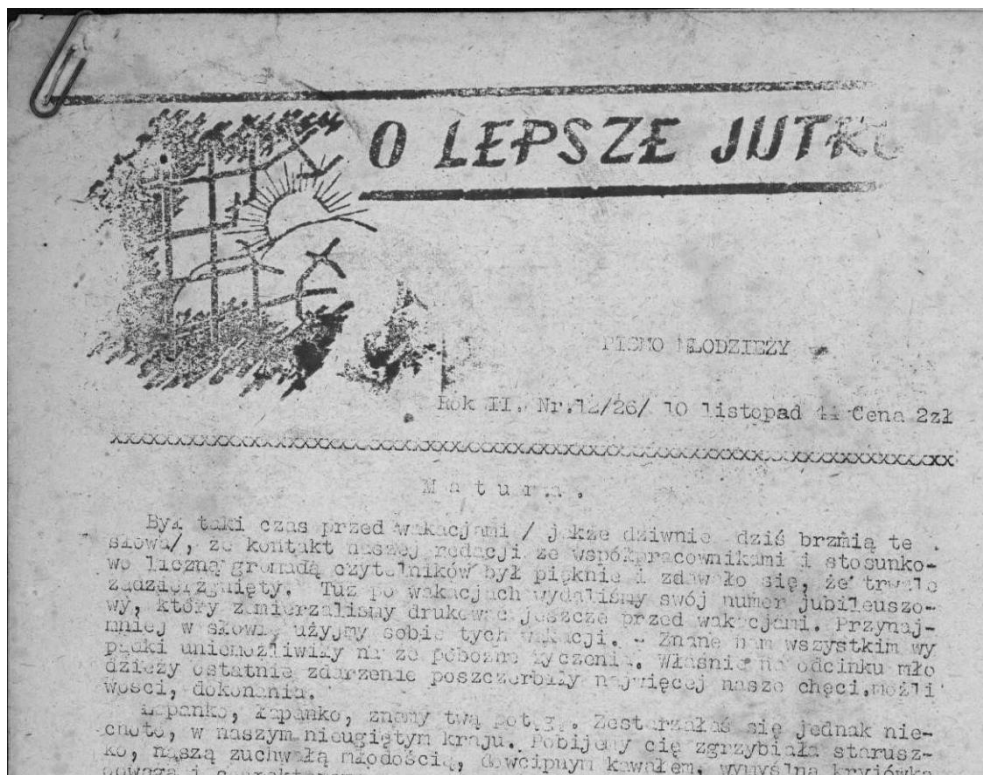 O LEPSZE JUTRO
PISMO MŁODZIEŻY
Rok II. Nr.12/26/ 10 listopad 44 Cena 2zł
xxxxxxxxxxxxxxxxxxxxxxxxxxxxxxxxxxxxxxxxxxxxxxxxxxxxxxxxxxxxxxxxxxxxxx
Matura.
Był taki czas przed wakacjami / jakże dziwnie dziś brzmią te
słowa/, że kontakt naszej redacji ze współpracownikami i stosunko-
wo liczną gromadą czytelników był pięknie i zdawało się, że trwale
zadzierzgnięty. Tuż po wakacjach wydaliśmy swój numer jubileuszo-
wy, który zamierzaliśmy drukować jeszcze przed wakacjami. Przynaj-
mniej w słowie użyjmy sobie tych wakacji. - Znane nam wszystkim wy
padki uniemożliwiły nasze pobożne życzenia. Właśnie na odcinku mło
dzieży ostatnie zdarzenie poszczerbiły najwięcej nasze chęci,możli
wości, dokonania.
Łapanko, łapanko, znamy twą potęgę. Zestarzałaś się jednak nie-
cnoto, w naszym nieugiętym kraju. Pobijemy cię zgrzybiała starusz-
ko, naszą zuchwałą młodością, dowcipnym kawałem, wymyślną kryjówką
powagą i